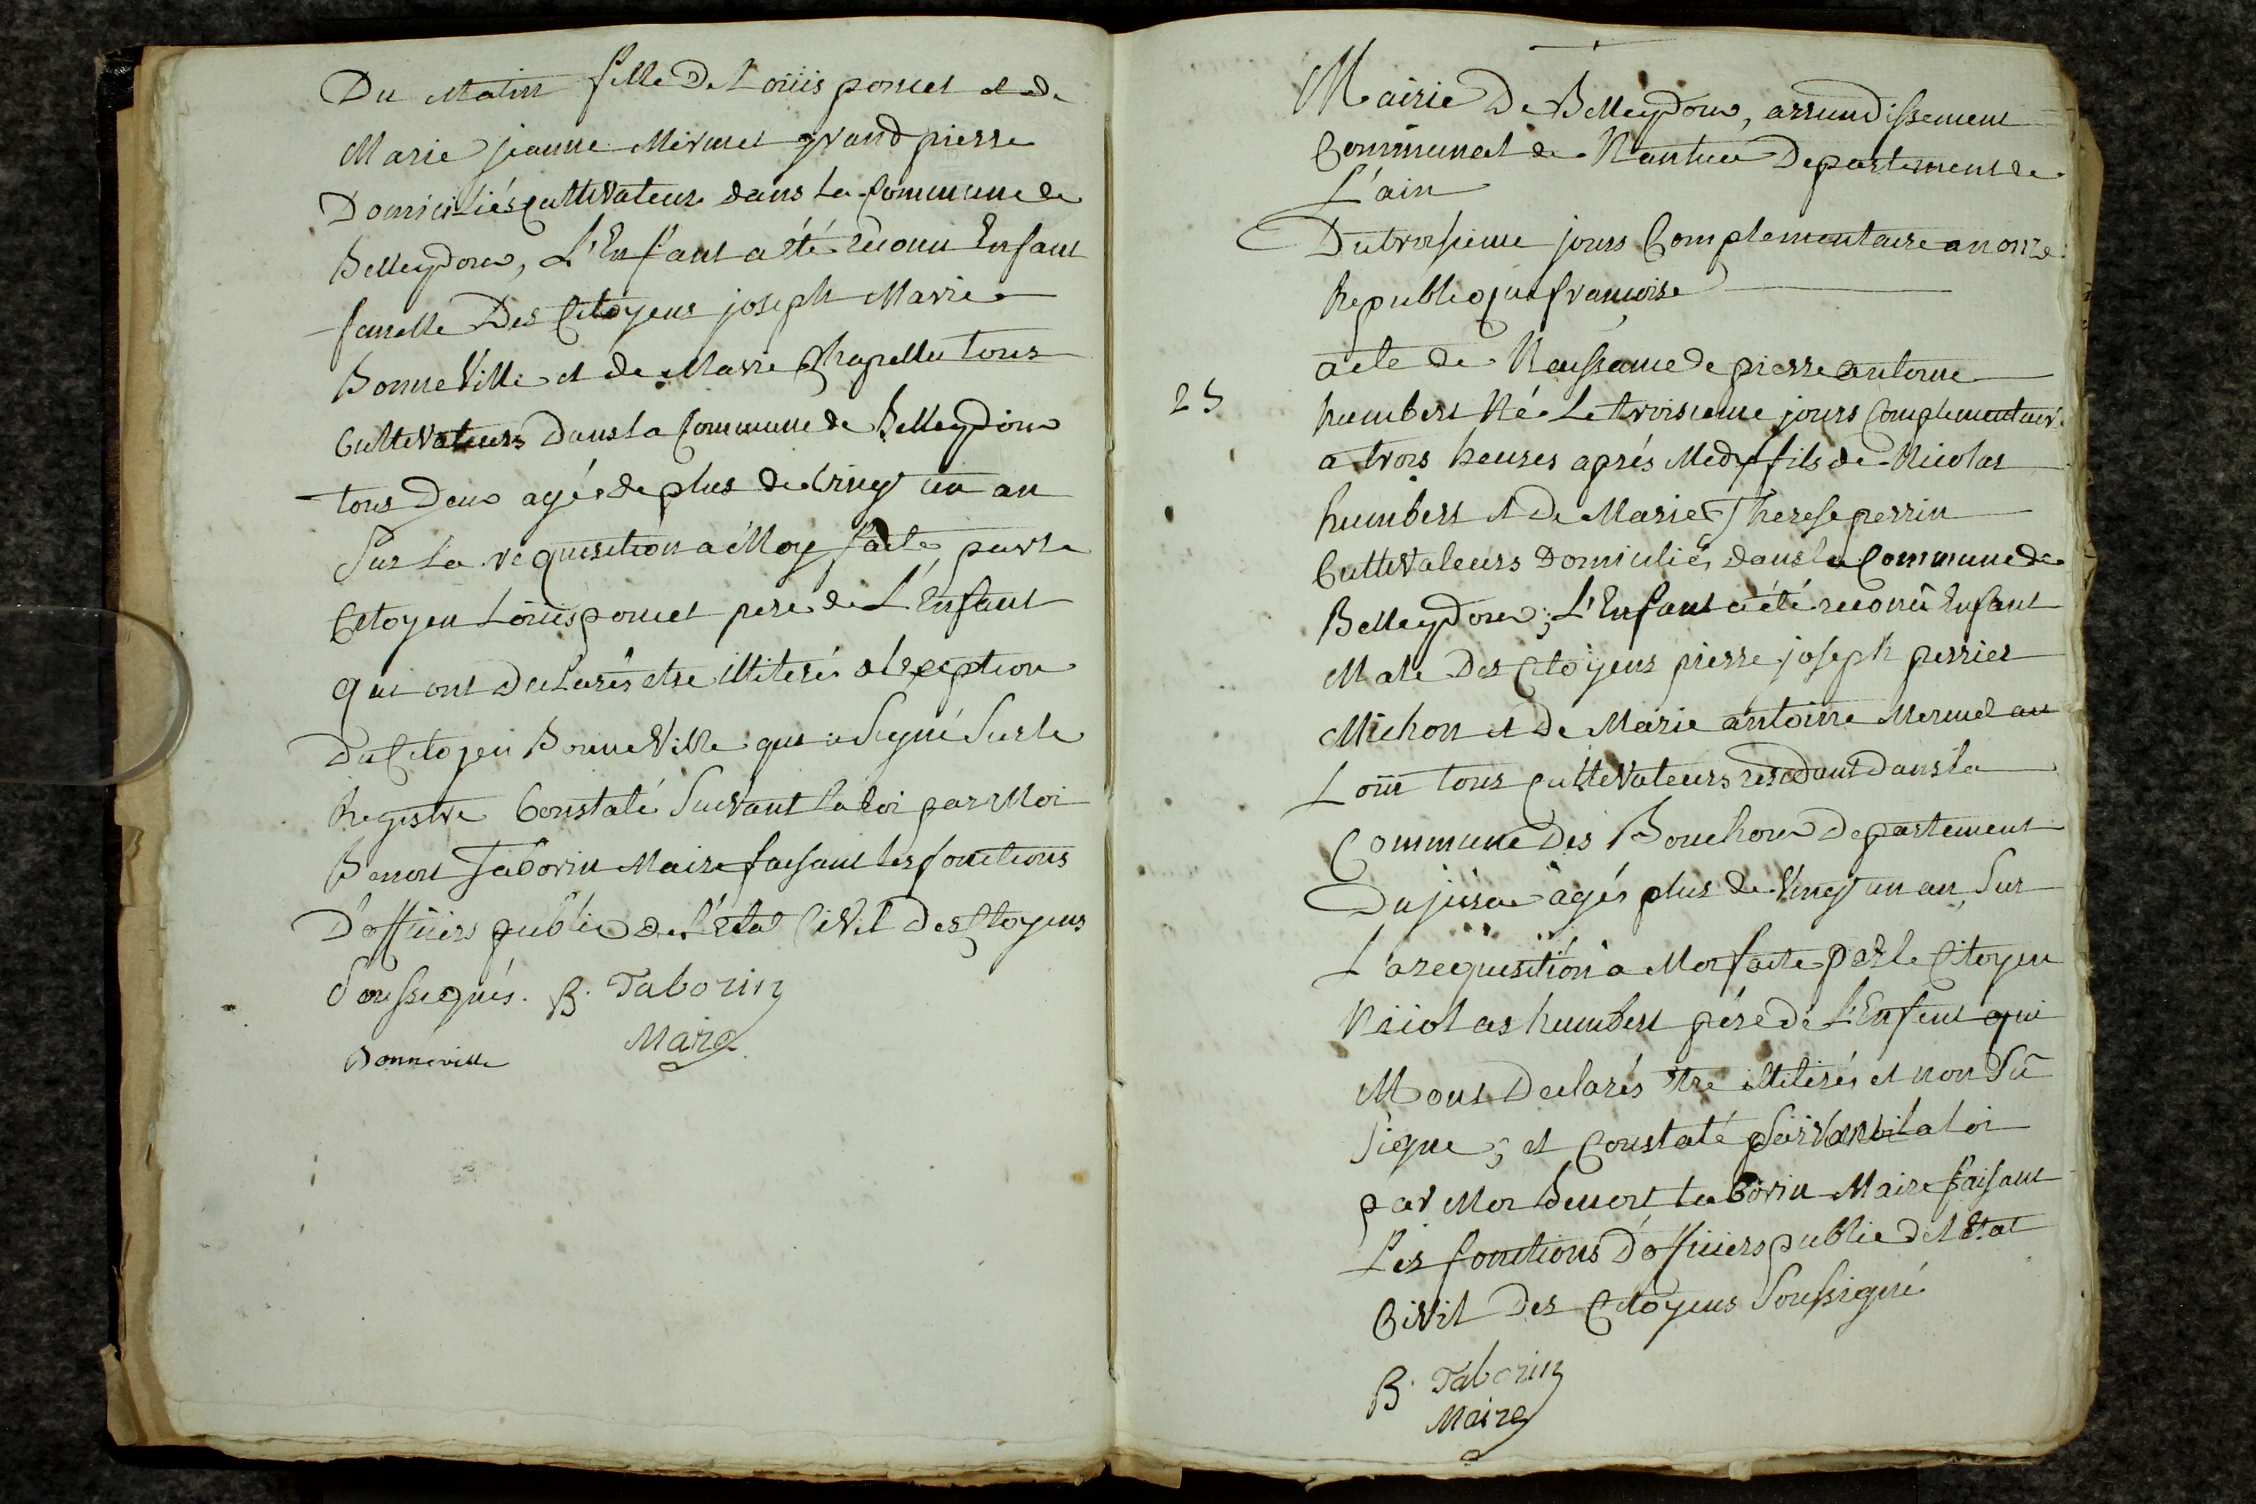 Du Matin fille De Loüis poncet et de
Marie jeanne Mermet grand pierre
Domiciliés cultivateur dans la Commune de
Belleydoux, L'Enfant a été reconu Enfant
femelle Des Citoyens joseph Marie
BonneVille et de Marie Chapellu tous
CultiVateurs Dans la Commune de Belleydoux
tous Deux agés de plus de Vingt un an
Sur la requisition a Moy faite par le
Citoyen Loüis poncet pere de L'Enfant
Qui ont Declarés etre illiterés a lexception
Du Citoyen BonneVille qui a Signé Sur le
Registre Constaté Suivant la loi par Moi
Benoit Taborin Maire faisant les fonctions
D'officiers public de L'état CiVil des Citoyens
Soussignés. B. Taborin
Maire
Bonneville
Mairie De Belleydoux, arrundissement
Communal de Nantua Departement de
L'ain
Du troisieme jours Complementaire an onze
Republique françoise
acte de Naissance de pierre antoine
25
humbert Né Le troisieme jours Complementair
a trois heures aprés Medy fils de Nicolas
humbert et De Marie Therese perrin
CultiVateurs Domicilies dans la Commune de
Belleydoux; L'Enfant a été reconû Enfant
Male Des Citoyens pierre joseph perrier
Michon et De Marie antoine Mermet au
Loüi tous CultiVateurs residant dans la
Commune Des Bouchoux departement
Du jura agés plus de Vingt un an, Sur
La requisition a Moi faite par le Citoyen
Nicolas humbert pére de L'Enfent qui
M ont Declarés étre illiterés et non Sû
Signe; et Constaté Suivant la loi
par Moi Benoit taborin Maire faisant
Les fonctions D'officiers public de l Etat
CiVil Des Citoyens Soussigné
B. Taborin
Maire